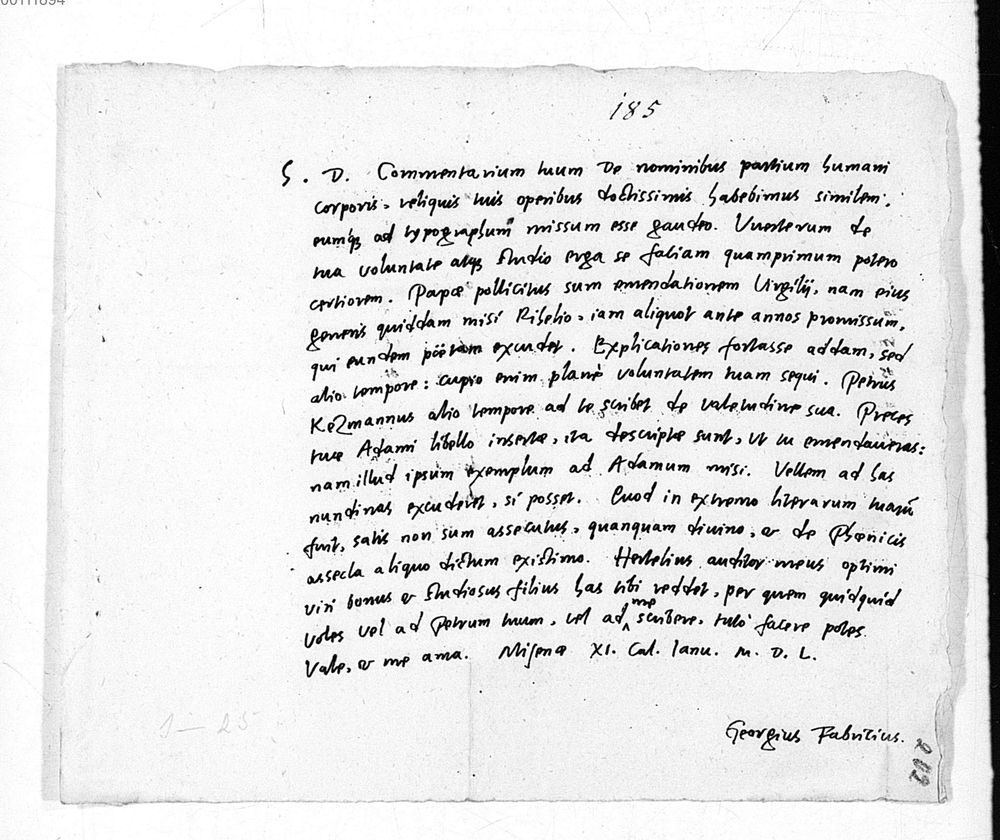 00111894
185
S. D. Commentarium tuum De nominibus partium humani
corporis, reliquis tuis operibus doctissimis habebimus similem,
eumq́; ad typographum missum esse gaudeo. Vuerterum de
tua voluntate atq; studio erga se faciam quamprimum potero
certiorem. Papæ pollicitus sum emendationem Virgilij, nam eius
generis quiddam misi Rihelio, iam aliquot ante annos promissum,
qui eundem poëtam excudet. Explicationes fortasse addam, sed
alio tempore: cupio enim planè voluntatem tuam sequi. Petrus
Kezmannus alio tempore ad te scribet de valetudine sua. Preces
tuæ Adami libello insertæ, ita descriptæ sunt, ut tu emendaueras:
nam illud ipsum exemplum ad Adamum misi. Vellem ad has
nundinas excuderet, si posset. Quod in extremo literarum tuarū
fuit, satis non sum assecutus, quanquam diuino, & de Phœnicis
assecla aliquo dictum existimo. Hertelius auditor meus optimi
viri bonus & studiosus filius has tibi reddet, per quem quidquid
voles vel ad Petrum tuum, vel ad me scribere, tutò facere potes.
Vale, & me ama. Misenæ XI. Cal. Ianu. M. D. L.
Georgius Fabricius.
1–25